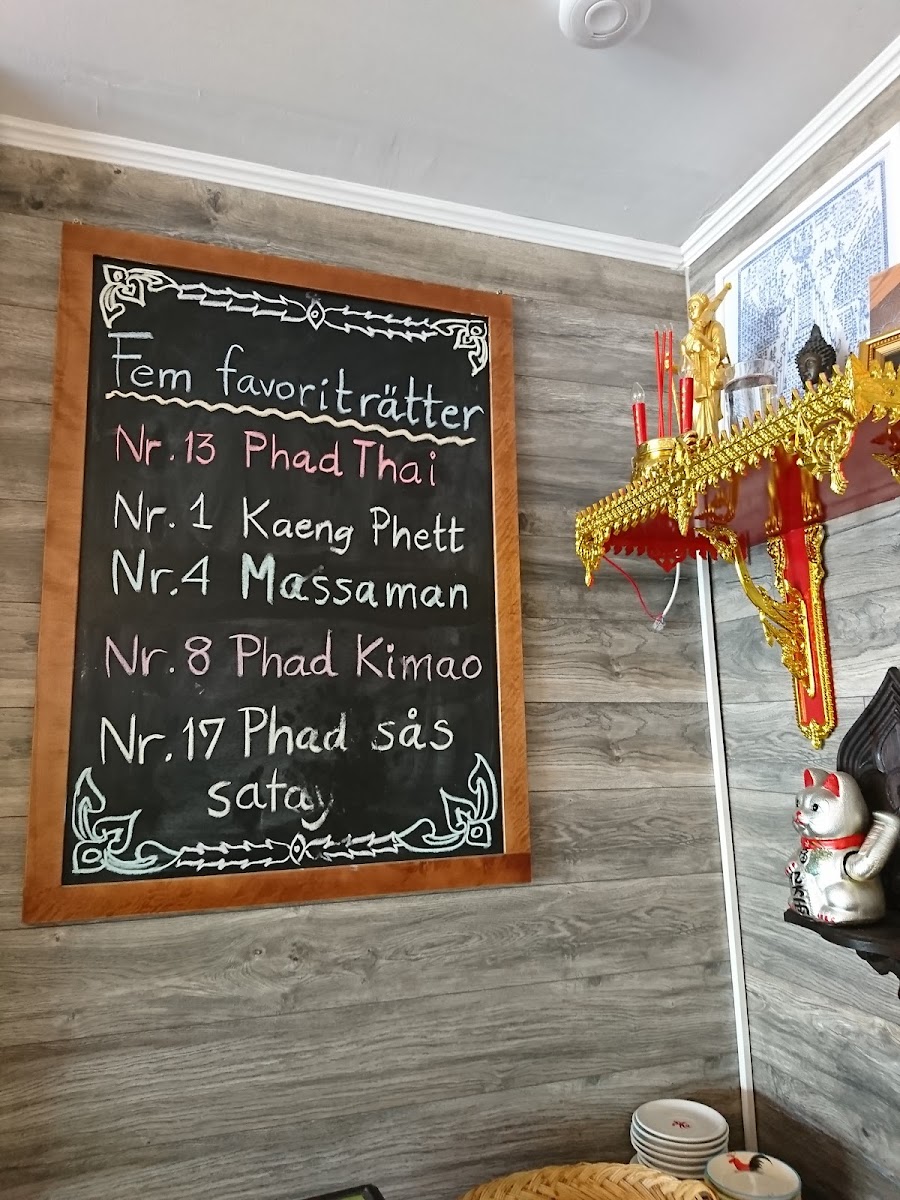 Fem favoriträtter
Nr. 13 Phad Thai
Nr. 1 Kaeng Phett
Nr. 4 Massaman
Nr. 8 Phad Kimao
Nr. 17 Phad sås
satay